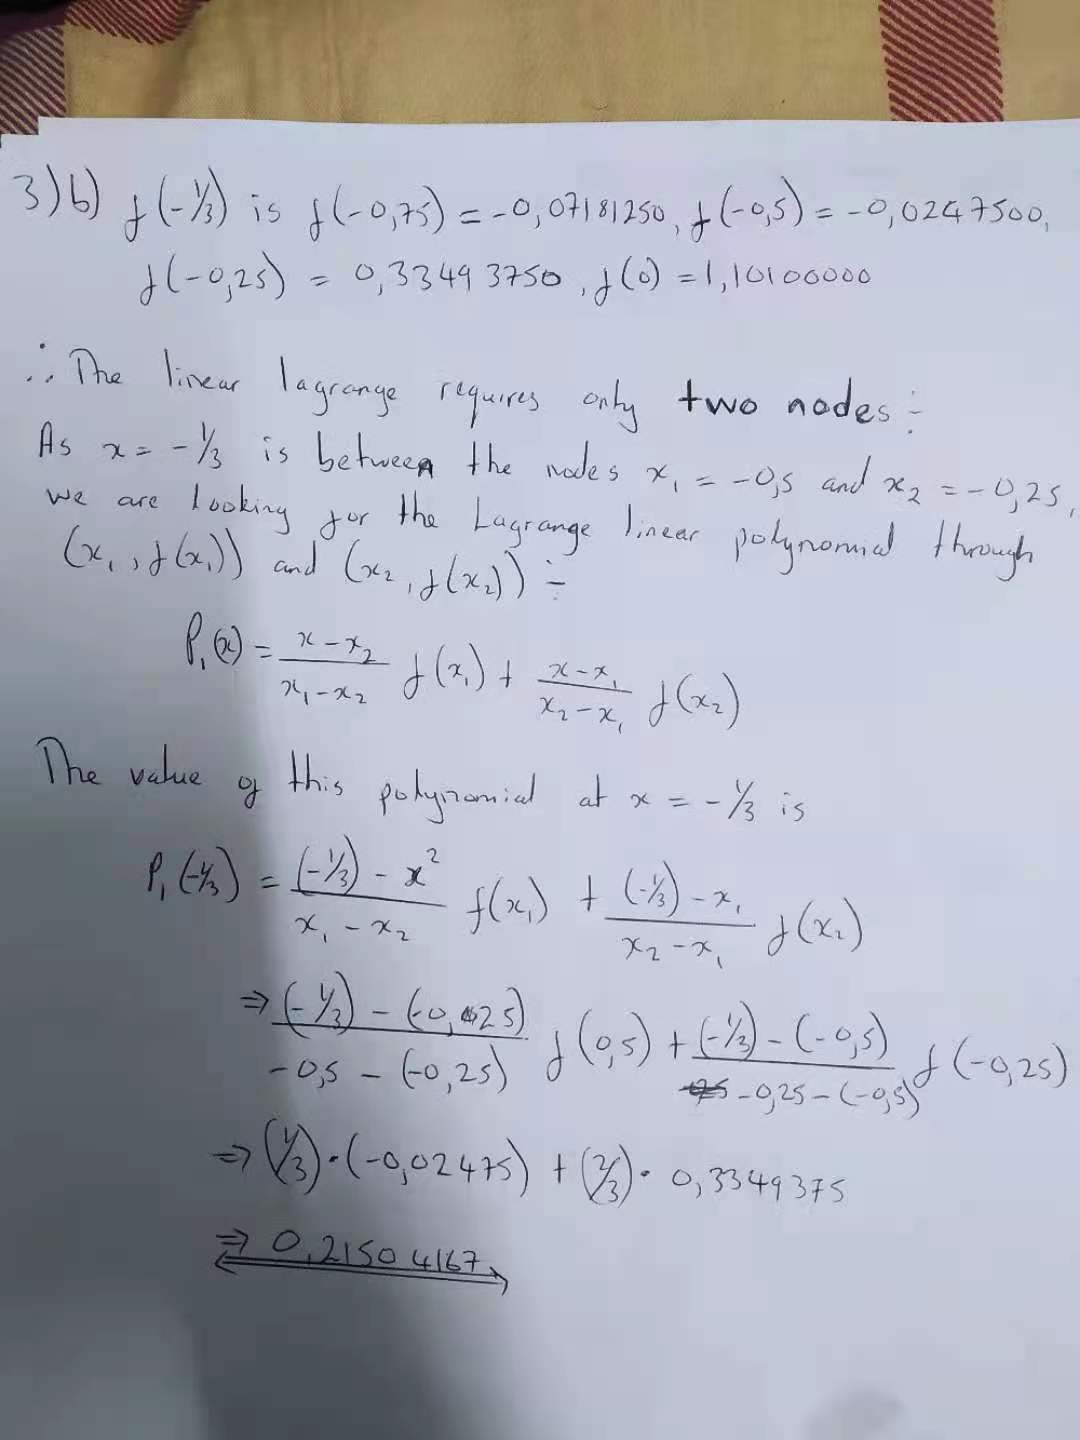 3)b) f(-1/3) is f(-0,75) = -0,07181250, f(-0,5) = -0,0247500,
f(-0,25) = 0,33493750, f(0) = 1,10100000
∴ The linear lagrange requires only two nodes :-
As x = -1/3 is between the nodes x₁ = -0,5 and x₂ = -0,25,
we are looking for the Lagrange linear polynomial through
(x₁, f(x₁)) and (x₂, f(x₂)) :-
P₁(x) = (x-x₂)/(x₁-x₂) f(x₁) + (x-x₁)/(x₂-x₁) f(x₂)
The value of this polynomial at x = -1/3 is
P₁(-1/3) = ((-1/3) - x²)/(x₁ - x₂) f(x₁) + ((-1/3) - x₁)/(x₂-x₁) f(x₂)
⇒ ((-1/3) - (-0,25))/(-0,5 - (-0,25)) f(0,5) + ((-1/3) - (-0,5))/(-0,25-(-0,5)) f(-0,25)
⇒ (1/3)·(-0,02475) + (2/3)· 0,3349375
⇒ 0,21504167